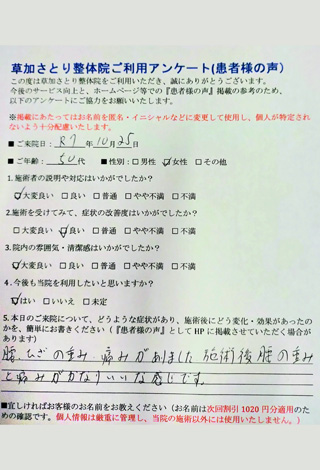 草加さとり整体院ご利用アンケート(患者様の声)
この度は草加さとり整体院をご利用いただき、誠にありがとうございます。
今後のサービス向上と、ホームページ等での『患者様の声』掲載の参考のため、
以下のアンケートにご協力をお願いいたします。
※掲載にあたってはお名前を匿名・イニシャルなどに変更して使用し、個人が特定され
ないよう十分配慮いたします。
■ご来院日： R7 年 10 月 25 日
■ご年齢： 50 代 ■性別：□男性 ☑女性 □その他
1. 施術者の説明や対応はいかがでしたか？
☑大変良い □良い □普通 □やや不満 □不満
2.施術を受けてみて、症状の改善度はいかがでしたか？
□大変良い ☑良い □普通 □やや不満 □不満
3. 院内の雰囲気・清潔感はいかがでしたか？
☑大変良い □良い □普通 □やや不満 □不満
4. 今後も当院を利用したいと思いますか？
☑はい □いいえ □未定
5. 本日のご来院について、どのような症状があり、施術後にどう変化・効果があったの
かを、簡単にお書きください（『患者様の声』として HP に掲載させていただく場合が
あります）
腰、ひざの重み、痛みがありました 施術後腰の重み
と痛みがかなりいいな感じです。
■宜しければお客様のお名前をお教えください（お名前は次回割引 1020 円分適用のた
めの確認です。個人情報は厳重に管理し、当院の施術以外には使用いたしません。）